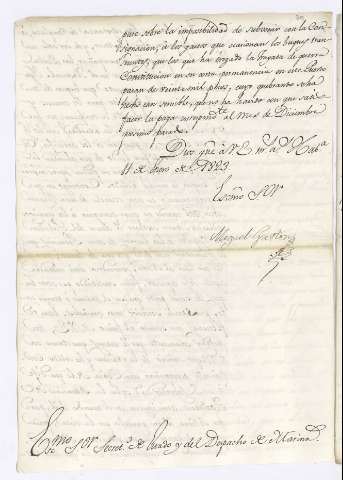 pues sobre la imposibilidad de subvenir con la Con-
signacion, à los gastos que ocasionan los buques tran-
seuntes, pues los que ha erogado la fragata de guerra
Constitucion en su corta permanencia en este
pasan de veinte mil ps fs, cuyo quebranto se ha
hecho tan sensible, qe no ha havido con que satis-
facer la paga correspondte al mes de Diciembre
proximo pasado.
Dios gue à V.E. ms as Haba
11 de Enero de 1823
Exmo Sor
Miguel Gaston
Exmo Sor Secreto de Estado y del Despacho de Marina.